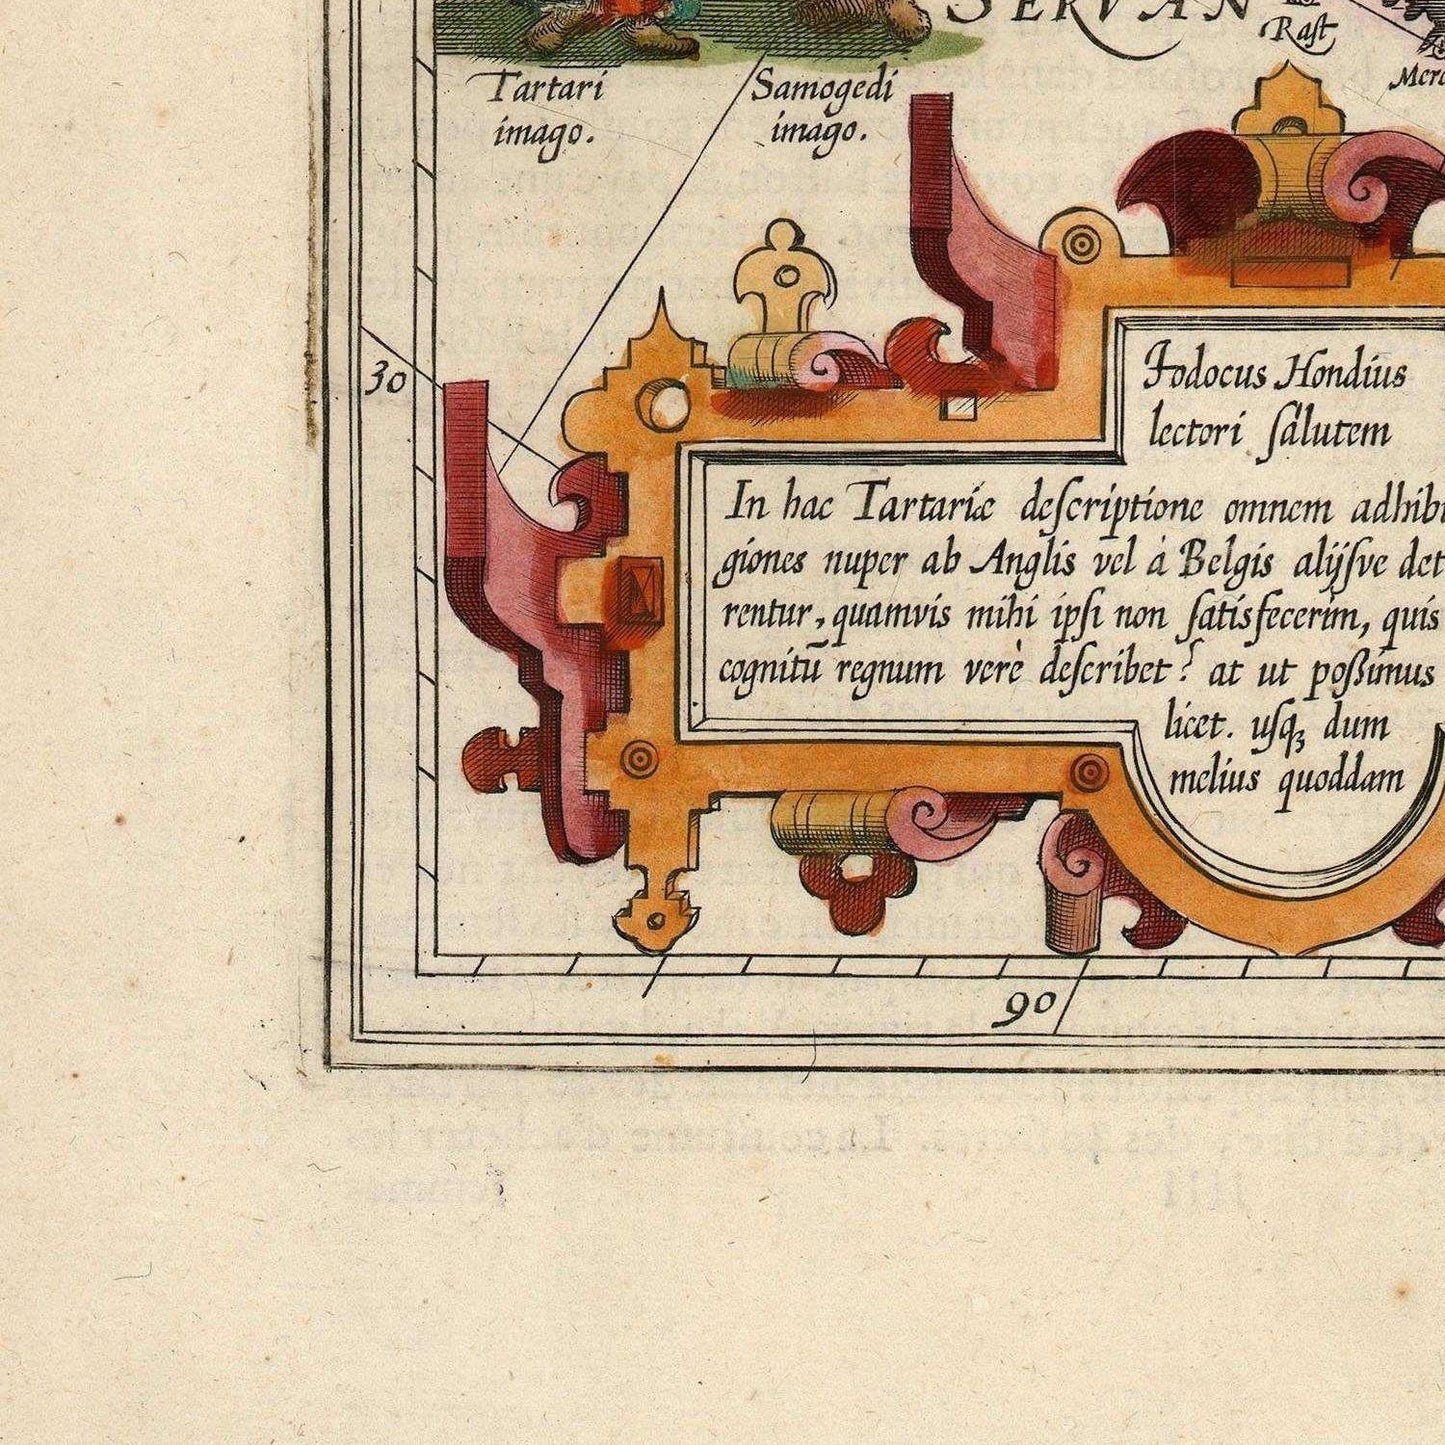 SERVAN
Rast
Tartari
imago.
Samogedi
imago.
30
Jodocus Hondius
lectori salutem
In hac Tartariæ descriptione omnem adhibu
giones nuper ab Anglis vel à Belgis alijsve det
rentur, quamvis mihi ipsi non satisfecerim, quis
cognitū regnum verè describet? at ut poßimus
licet. usqꝫ dum
melius quoddam
90